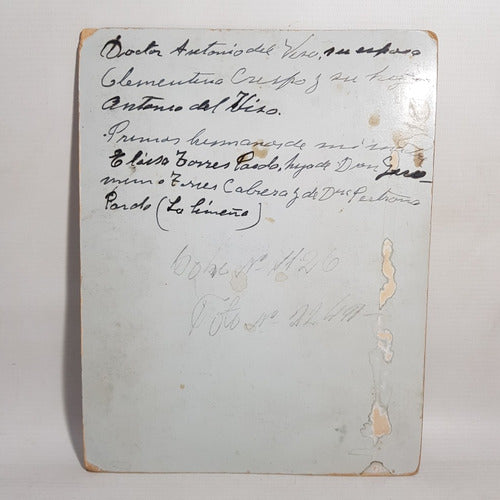 Doctor Antonio del Viso, su esposa
Clementina Crespo y su hijo
Antonio del Viso.
Primos hermanos de mi
Eloisa Torres Pardo, hija de Don Gero-
nimo Torres Cabrera y de Dña Petrona
Pardo (La limeña)
Nº 1126
Foto Nº